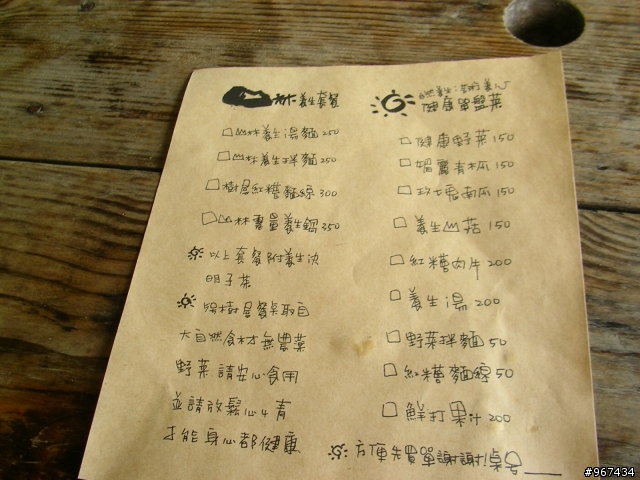 林養生套餐
□山林養生湯麵250
□山林養生拌麵250
□樹屋紅糟麵線300
□山林霸量養生鍋350
以上套餐附養生決
明子茶
陽樹屋餐點取自
大自然食材無農藥
野菜請安心食用
並請放鬆心情
才能身心都健康
自然養生;若府養心
健康單盤菜
□健康野菜150
□媚麗青木瓜150
□玫瑰南瓜150
□養生山菇150
□紅糟肉片200
□養生湯200
□野菜拌麵50
□紅糟麵線50
□鮮打果汁200
方便先買單謝謝!桌号__
#967434